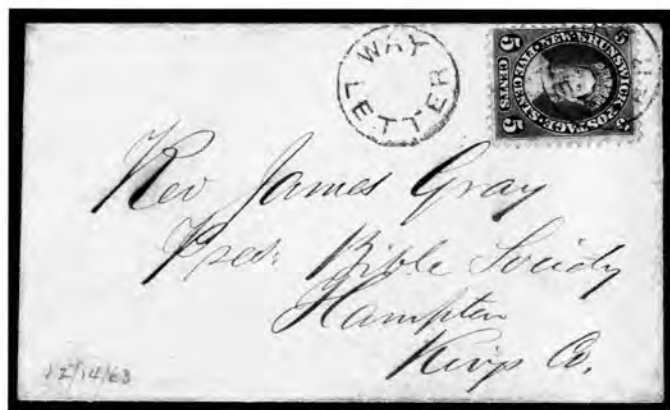 WAY
LETTER
5 NEW BRUNSWICK POSTAGE 5
5 CENTS FIVE CENTS 5
Rev James Gray
Pres: Bible Society
Hampton
Kings Co.
12/14/63